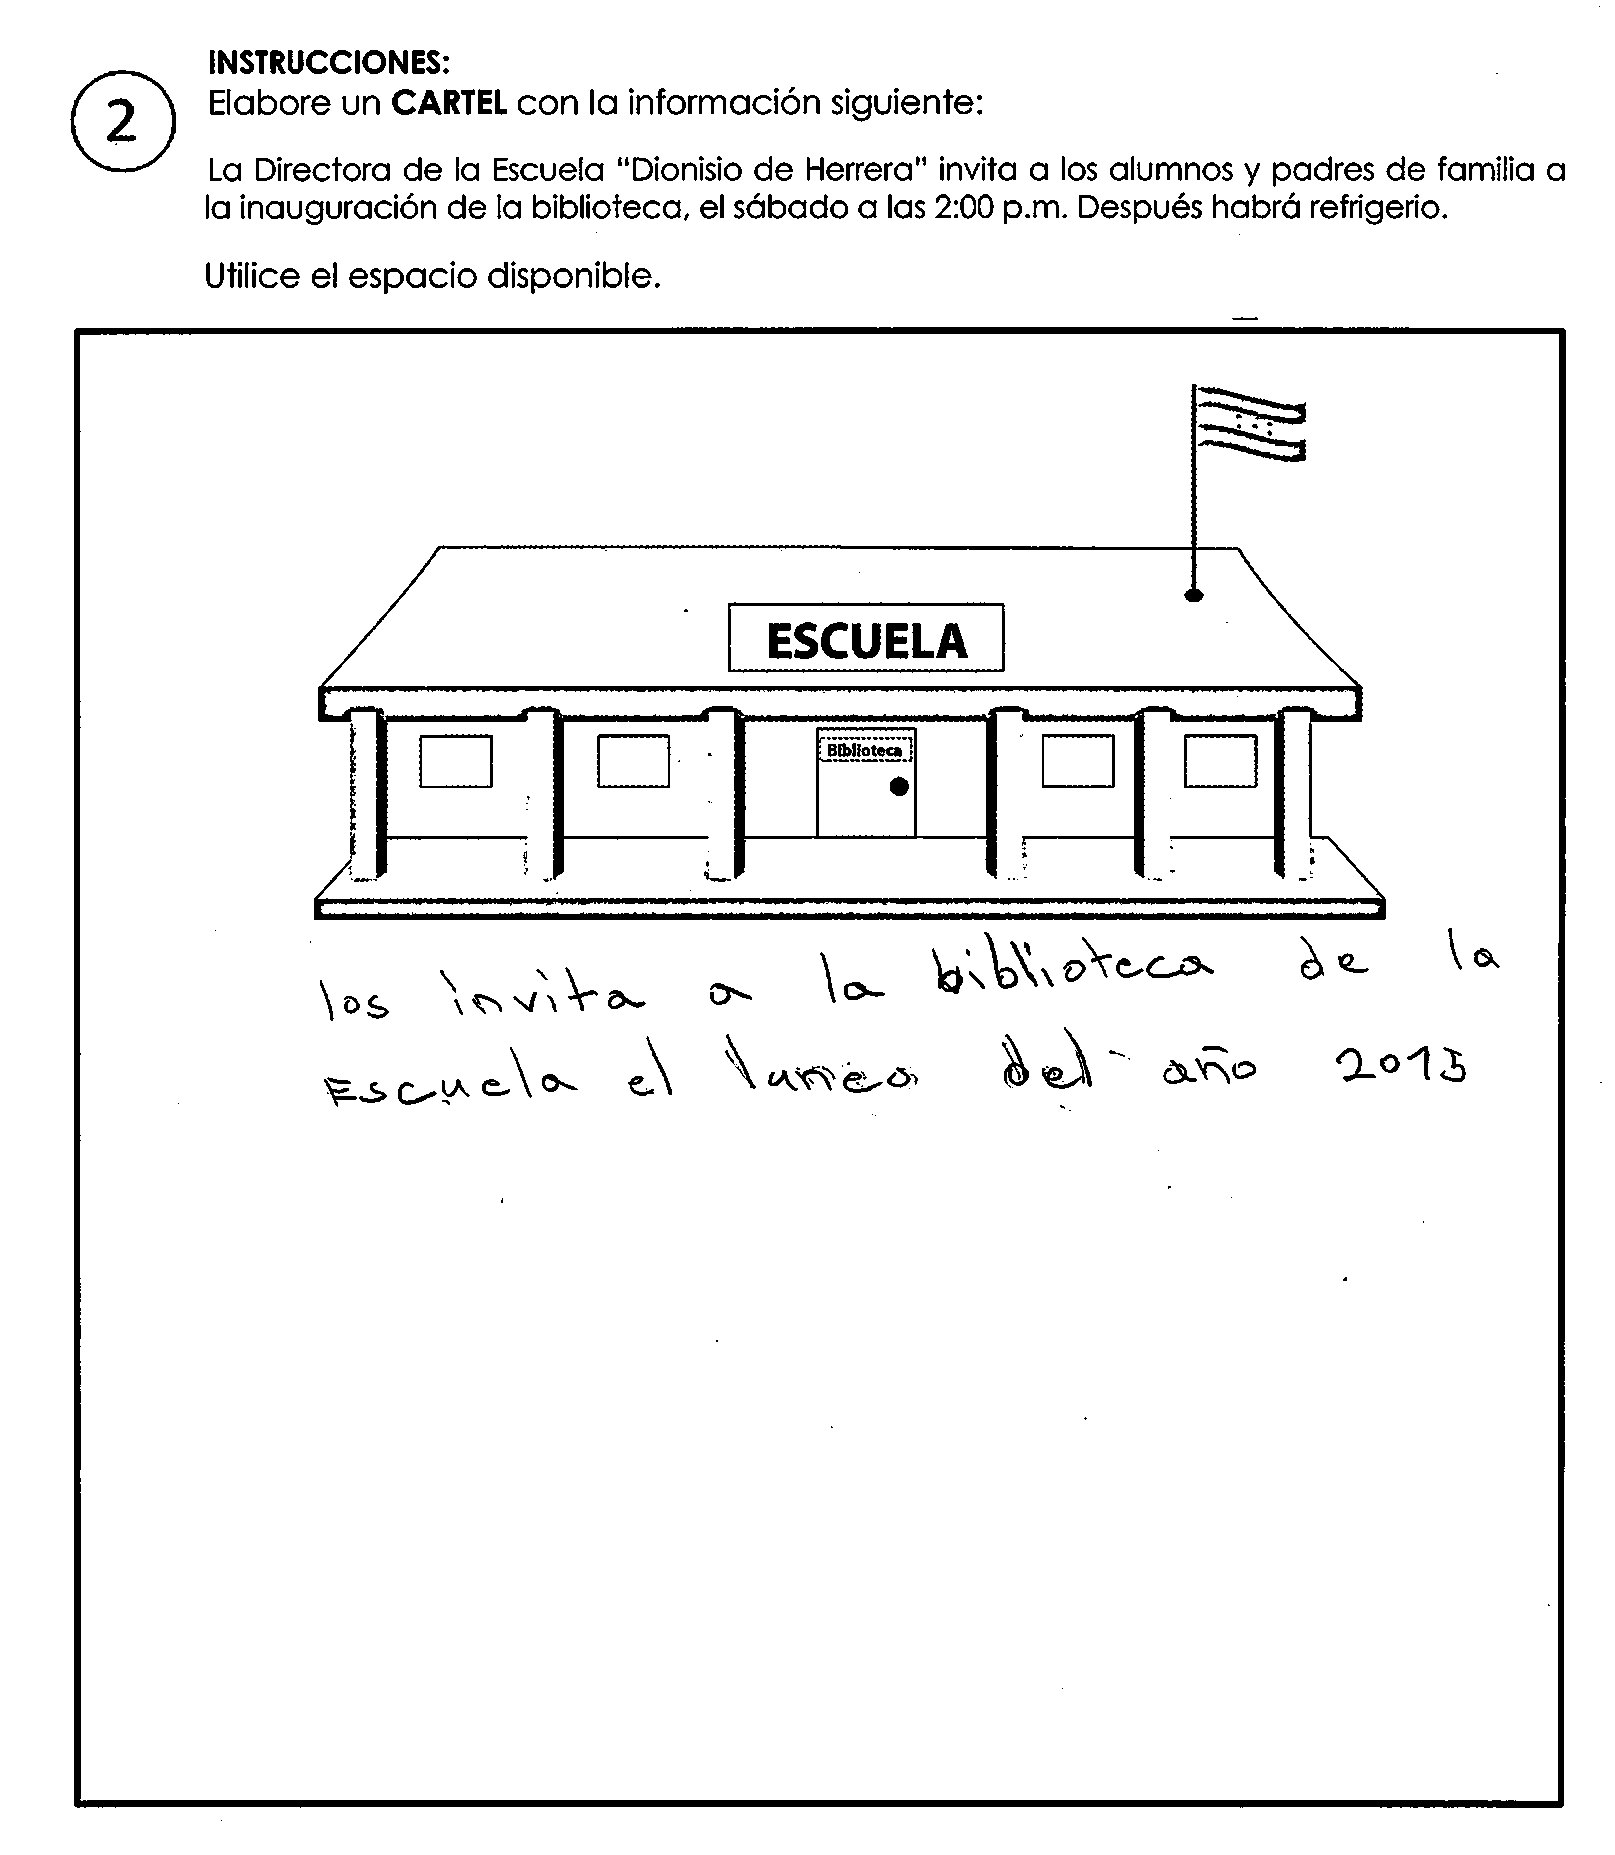 INSTRUCCIONES:
2
Elabore un CARTEL con la información siguiente:
La Directora de la Escuela "Dionisio de Herrera" invita a los alumnos y padres de familia a
la inauguración de la biblioteca, el sábado a las 2:00 p.m. Después habrá refrigerio.
Utilice el espacio disponible.
ESCUELA
Biblioteca
los invita a la biblioteca de la
Escuela el del año 2015